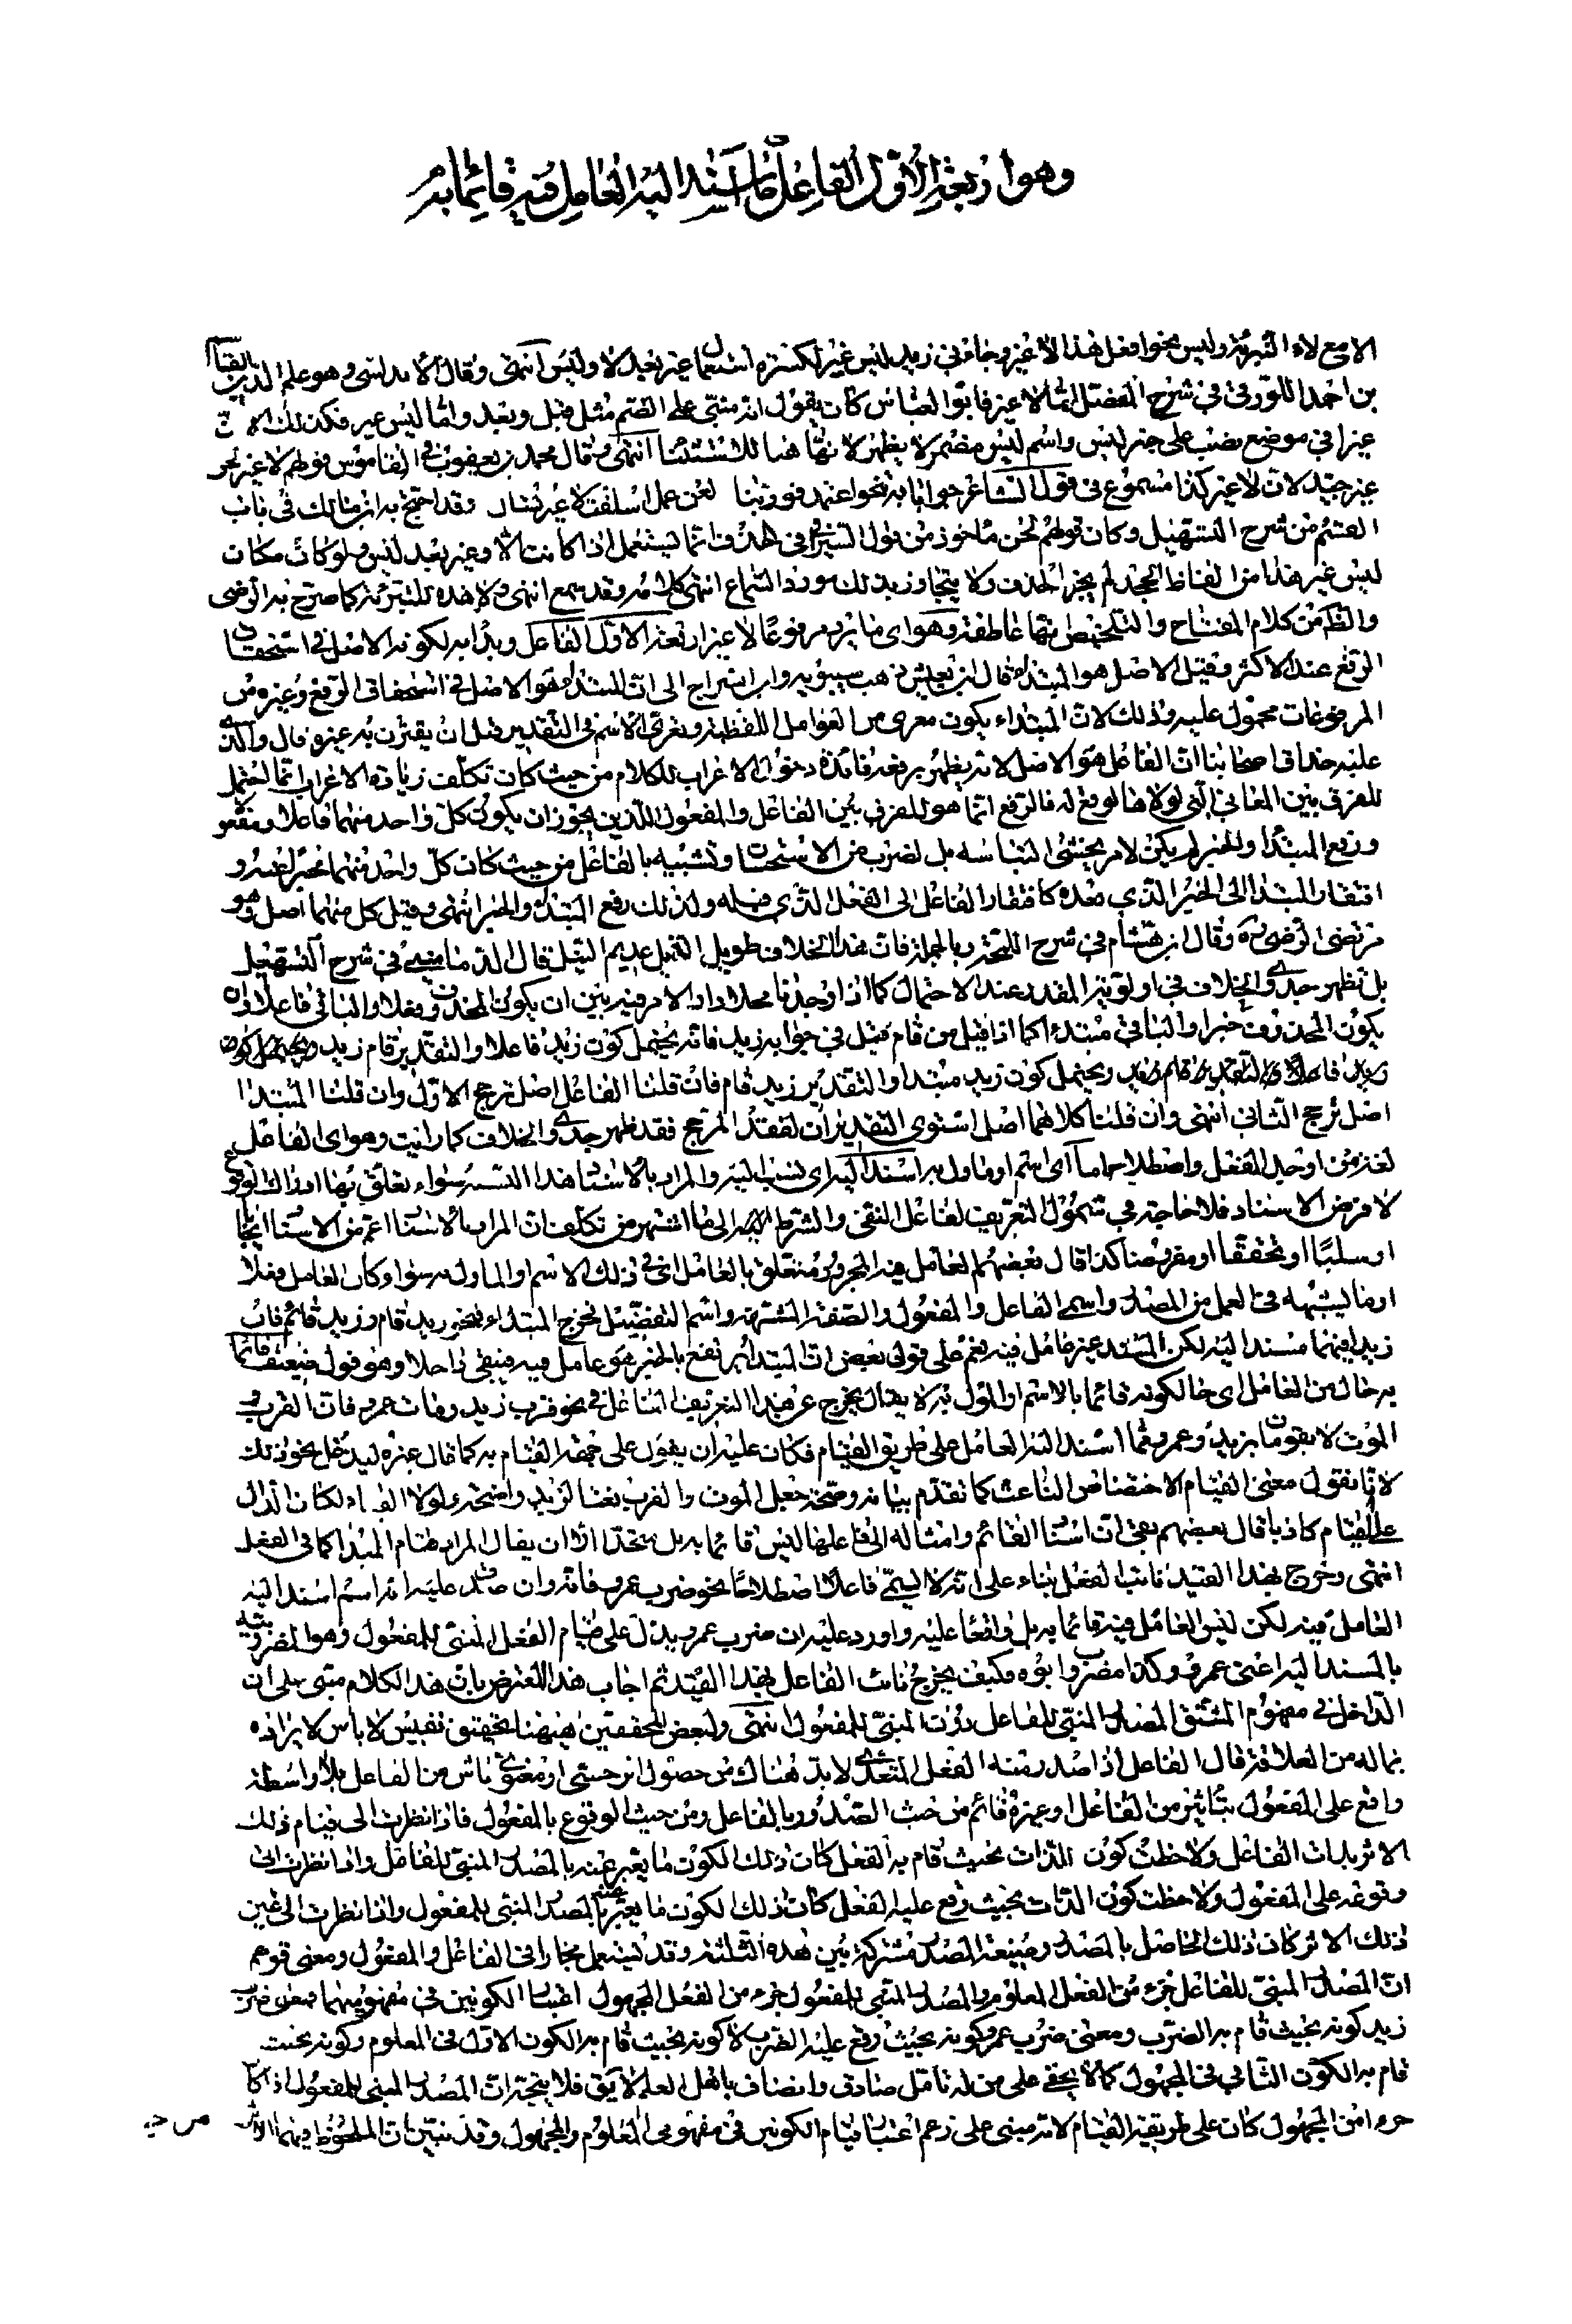 وهو اربعة الاول الفاعل ما اسند اليه العامل فيه قائما به
الا مع لاء التبرئة وليس نحو افعل هذا لا غير وجاءني زيد ليس غير لكثرة استعمال غير بعد لا وليس انتهى وقال الاندلسي وهو علم الدين القاسم
بن احمد اللورقي في شرح المفصل اما لا غير فابو العباس كان يقول انه مبني على الضم مثل قبل وبعد واما ليس غير فكذلك الا ان
غير في موضع نصب على خبر ليس واسم ليس مضمر لا يظهر لانها هنا للاستثناء انتهى وقال محمد بن يعقوب في القاموس قولهم لا غير لحن
غير جيد لان لا غير كذا مسموع في قول الشاعر جوابا به تنجو اعتمد فوربنا لعن عمل اسلفت لا غير تسال وقد احتج به ابن مالك في باب
القسم من شرح التسهيل وكان قولهم لحن مأخوذ من قول السيرافي الحذف انما يستعمل اذا كانت الا وغير بعد ليس ولو كان مكان
ليس غيرهذا من الفاظ الجحد لم يجز الحذف ولا يتجاوز بذلك مورد السماع انتهى كلامه وقد سمع انتهى ولا هذه للتبرئة كما صرح به الرضى
والظ من كلام المفتاح والتلخيص انها عاطفة وهو اى ما يرد مرفوعا لا غير اربعة الاول الفاعل وبدا به لكونه الاصل في استحقاق
الرفع عند الاكثر وقيل الاصل هو المبتدا قال ابن يعيش ذهب سيبويه وابن السراج الى ان المبتداء هو الاصل في استحقاق الرفع وغيره من
المرفوعات محمول عليه وذلك لان المبتداء يكون معرى من العوامل اللفظية وتعرى الاسم في التقدير قبل ان يقترن به غيره قال والذي
عليه حذاق اصحابنا ان الفاعل هو الاصل لانه يظهر برفعه فائدة دخول الاعراب للكلام من حيث كان تكلف زيادة الاعراب انما احتمل
للفرق بين المعاني التي لولاها لوقع لبس فالرفع انما هو للفرق بين الفاعل والمفعول اللذين يجوز ان يكون كل واحد منهما فاعلا ومفعولا
ورفع المبتدا والخبر لم يكن لامر يخشى التباسه بل لضرب من الاستحسان وتشبيه بالفاعل من حيث كان كل واحد منهما مخبرا عنه و
افتقار المبتدا الى الخبر الذي بعده كافتقار الفاعل الى الفعل الذي قبله ولذلك رفع المبتدا والخبر انتهى وقيل كل منهما اصل وهو
مرتضى الرضى ره وقال ابن هشام في شرح اللمحة وبالجملة فان هذا الخلاف طويل الذيل عديم النيل قال الدماميني في شرح التسهيل
بل تظهر جدوى الخلاف في اولوية المقدر عند الاحتمال كما اذا وجدنا محلا دار الامر فيه بين ان يكون المحذوف فعلا والباقي فاعلا وان
يكون المحذوف خبرا والباقي مبتدءا كما اذا قيل من قام فقيل في جوابه زيد فانه يحتمل كون زيد فاعلا والتقدير قام زيد ويحتمل كون
زيد فاعلا والتقدير قام زيد ويحتمل كون زيد مبتدا والتقدير زيد قام فان قلنا الفاعل اصل ترجح الاول وان قلنا المبتدا
اصل ترجح الثاني انتهى وان قلنا كلاهما اصل استوى التقديران لفقد المرجح فقد ظهر جدوى الخلاف كما رايت وهو اى الفاعل
لغة من اوجد الفعل واصطلاحا ما اى اسم او ماول به اسند اليه اى نسب اليه والمراد بالاسناد هذا النسبة سواء تعلق بها ادراك الوقوع
لا فرض الاسناد فلا حاجة في شمول التعريف لفاعل النفى والشرط الى ما اشتهر من تكلف ان المراد بالاسناد اعم من الاسناد ايجابا
او سلبا او تحققا او مفروضا كذا قال بعضهم العامل فيه المجرور متعلق بالعامل اى في ذلك الاسم والماول به سواء كان العامل فعلا
او ما يشبهه في العمل من المصدر واسمي الفاعل والمفعول والصفة المشبهة واسم التفضيل فخرج المبتداء في نحو زيد قام وزيد قائم فان
زيدا فيهما مسند اليه لكن المسند غير عامل فيه نعم على قول بعض ان المبتدا يرتفع بالخبر هو عامل فيه فيبقى داخلا وهو قول ضعيف قائما
به حال من العامل اى حالكونه قائما بالاسم او الماول به لا يقال يخرج عن هذا التعريف الفاعل في نحو قرب زيد ومات عمرو فان القرب و
الموت لا يقومان بزيد وعمرو فما اسند اليه العامل على طريق القيام فكان عليه ان يقول على جهة القيام به كما قال غيره ليدخل نحو ذلك
لانا نقول معنى القيام الاختصاص الناعت كما تقدم بيانه وصحة جعل الموت والقرب نعتا لزيد واضحة ولولا القيام لكان الدال
على القيام كاذبا قال بعضهم بقى ان اسناد القائم وامثاله الى فاعلها ليس قائما به بل متحدا الا ان يقال المراد قيام المبدا كما في الفعل
انتهى وخرج بهذا القيد نائب الفعل بناء على انه لا يسمى فاعلا اصطلاحا نحو ضرب عمرو فانه وان صدق عليه انه اسم اسند اليه
العامل فيه لكن ليس العامل فيه قائما به بل واقعا عليه واورد عليه ان ضرب عمرو يدل على قيام الفعل المبني للمفعول وهو المضروبية
بالمسند اليه اعنى عمرو وكذا مضروب ابوه فكيف يخرج نائب الفاعل بهذا القيد ثم اجاب هذا المعترض بان هذا الكلام مبني على ان
الداخل في مفهوم المشتق المصدر المبني للفاعل دون المبني للمفعول انتهى ولبعض المحققين هيهنا تحقيق نفيس لا بأس لايراده
لما له من العلاقة قال الفاعل اذا صدر منه الفعل المتعدى لا بد هناك من حصول اثر حسي او معنوي ناش من الفاعل بلا واسطة
واقع على المفعول بتأثير من الفاعل او غيره قائم من حيث الصدور بالفاعل ومن حيث الوقوع بالمفعول فاذا نظرت الى قيام ذلك
الاثر بذات الفاعل ولاحظت كون الذات بحيث قام به الفعل كان ذلك الكون ما يعبر عنه بالمصدر المبني للفاعل واذا نظرت الى
وقوعه على المفعول ولاحظت كون الذات بحيث وقع عليه الفعل كان ذلك الكون ما يعبر عنه بالمصدر المبني للمفعول واذا نظرت الى عين
ذلك الاثر كان ذلك الحاصل بالمصدر وصيغة المصدر مشتركة بين هذه الثلثة وقد يستعمل مجازا في الفاعل والمفعول ومعنى قولهم
ان المصدر المبني للفاعل جزء من الفعل المعلوم والمصدر المبني للمفعول جزء من الفعل المجهول اعتبار الكونين في مفهوميهما فمعنى ضرب
زيد كونه بحيث قام به الضرب ومعنى ضرب عمرو كونه بحيث وقع عليه الضرب لا كونه بحيث قام به الكون الاول في المعلوم وكونه بحيث
قام به الكون الثاني في المجهول كما لا يخفى على من له تأمل صادق وانصاف باهل العلم لايق فلا يتجه ان المصدر المبني للمفعول اذا كان
جزءا من المجهول كان على طريقة القيام لانه مبني على زعم اعتبار قيام الكونين في مفهومي المعلوم والمجهول وقد تبين ان الملحوظ فيهما الاثر